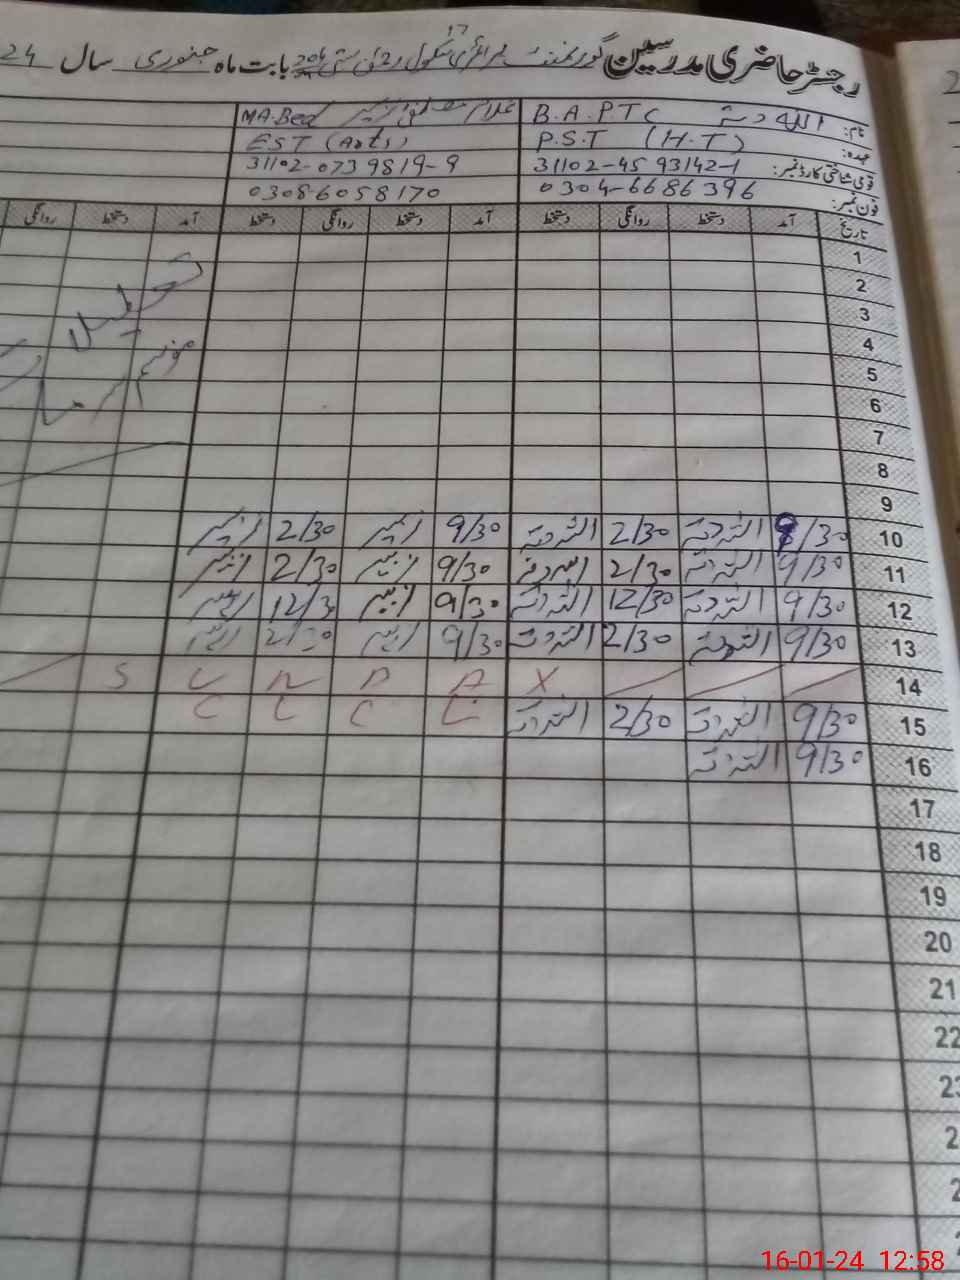 رجسٹر حاضری مدرسین گورنمنٹ پرائمری سکول بستی بابت ماہ جنوری سال 24
نام: اللہ دتہ B.A.P.T.C غلام مصطفیٰ MA.Bed
عہدہ: P.S.T (H.T) EST (Arts)
قومی شناختی کارڈ نمبر: 31102-4593142-1 31102-0739819-9
فون نمبر: 0304-6686396 0308-6058170
تاریخ آمد دستخط روانگی دستخط آمد دستخط روانگی دستخط آمد دستخط روانگی
1
2
3
4
5
6
7
8
9
تعطیل
موسم سرما
10 9/30 اللہ دتہ 2/30 اللہ دتہ 9/30 2/30
11 9/30 اللہ دتہ 2/30 اللہ دتہ 9/30 2/30
12 9/30 اللہ دتہ 12/30 اللہ دتہ 9/30 12/30
13 9/30 اللہ دتہ 2/30 اللہ دتہ 9/30 2/30
14 X A D N U S
15 9/30 اللہ دتہ 2/30 اللہ دتہ L C L C
16 9/30 اللہ دتہ
17
18
19
20
21
22
23
16-01-24 12:58